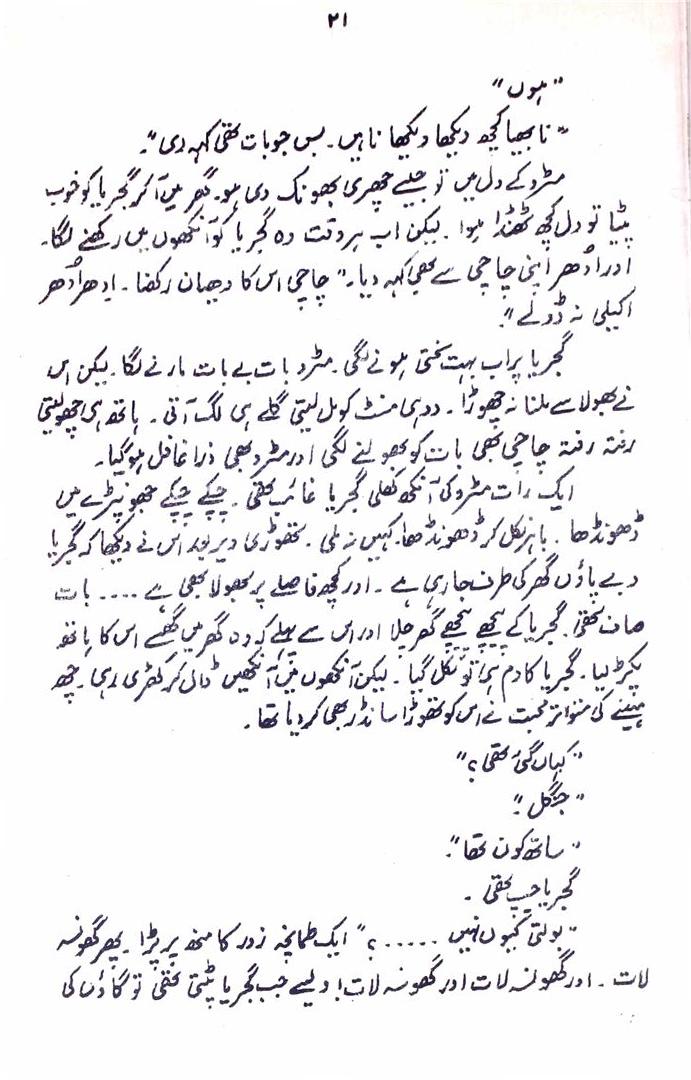 ۲۱
"ہوں"
"نا بھیا کچھ دیکھا ویکھا ناہیں۔ بس جو بات تھی کہہ دی"۔
مٹرو کے دل میں تو جیسے چھری بھونک دی ہو۔ گھر میں آ کر گجریا کو خوب
پیٹا تو دل کچھ ٹھنڈا ہوا۔ لیکن اب ہر وقت وہ گجریا کو آنکھوں میں رکھنے لگا۔
ادر اُدھر اپنی چاچی سے بھی کہہ دیا۔" چاچی اس کا دھیان رکھنا۔ اِدھر اُدھر
اکیلی نہ ڈولے"۔
گجریا پر اب بہت سختی ہونے لگی۔ مٹرو بات بے بات مارنے لگا۔ لیکن اس
نے بھولا سے ملنا نہ چھوڑا۔ دو ہی منٹ کو مل لیتی گلے ہی لگ آتی۔ ہاتھ ہی چھو لیتی
رفتہ رفتہ چاچی بھی بات کو بھولنے لگی اور مٹرو بھی ذرا غافل ہو گیا۔
ایک رات مٹرو کی آنکھ کھلی گجریا غائب تھی۔ چپکے چپکے جھونپڑے میں
ڈھونڈھا۔ باہر نکل کر ڈھونڈھا۔ کہیں نہ ملی۔ تھوڑی دیر بعد اس نے دیکھا کہ گجریا
دبے پاؤں گھر کی طرف جا رہی ہے۔ اور کچھ فاصلے پر بھولا بھی ہے .... بات
صاف تھی۔ گجریا کے پیچھے پیچھے گھر چلا اور اس سے پہلے کہ وہ گھر میں گھسے اس کا ہاتھ
پکڑ لیا۔ گجریا کا دم ہی تو نکل گیا۔ لیکن آنکھوں میں آنکھیں ڈال کر کھڑی رہی۔ چھ
مہینے کی متواتر محبت نے اس کو تھوڑا سا نڈر بھی کر دیا تھا۔
"کہاں گئی تھی؟"
"جنگل"۔
"ساتھ کون تھا"۔
گجریا چپ تھی۔
"بولتی کیوں نہیں .....؟" ایک طمانچہ زور کا منھ پر پڑا۔ پھر گھونسہ
لات۔ اور گھونسہ لات اور گھونسہ لات! ویسے جب گجریا پٹتی تھی تو گاؤں کی